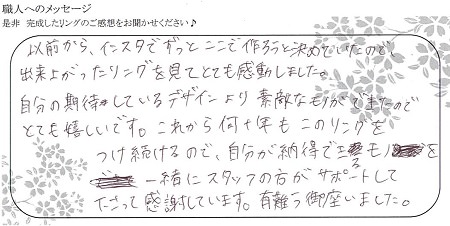 職人へのメッセージ
是非 完成したリングのご感想をお聞かせください♪
以前から、インスタでずっとここで作ろうと決めていたので、
出来上がったリングを見てとても感動しました。
自分の期待しているデザインより素敵なものができたので
とても嬉しいです。これから何十年もこのリングを
つけ続けるので、自分が納得できるモノを
一緒にスタッフの方がサポートして
下さって感謝しています。有難う御座いました。